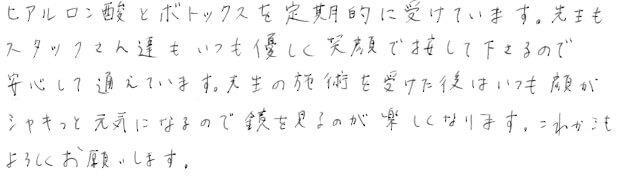 ヒアルロン酸とボトックスを定期的に受けています。先生も
スタッフさん達もいつも優しく笑顔で接して下さるので
安心して通えています。先生の施術を受けた後はいつも顔が
シャキっと元気になるので鏡を見るのが楽しくなります。これからも
よろしくお願いします。